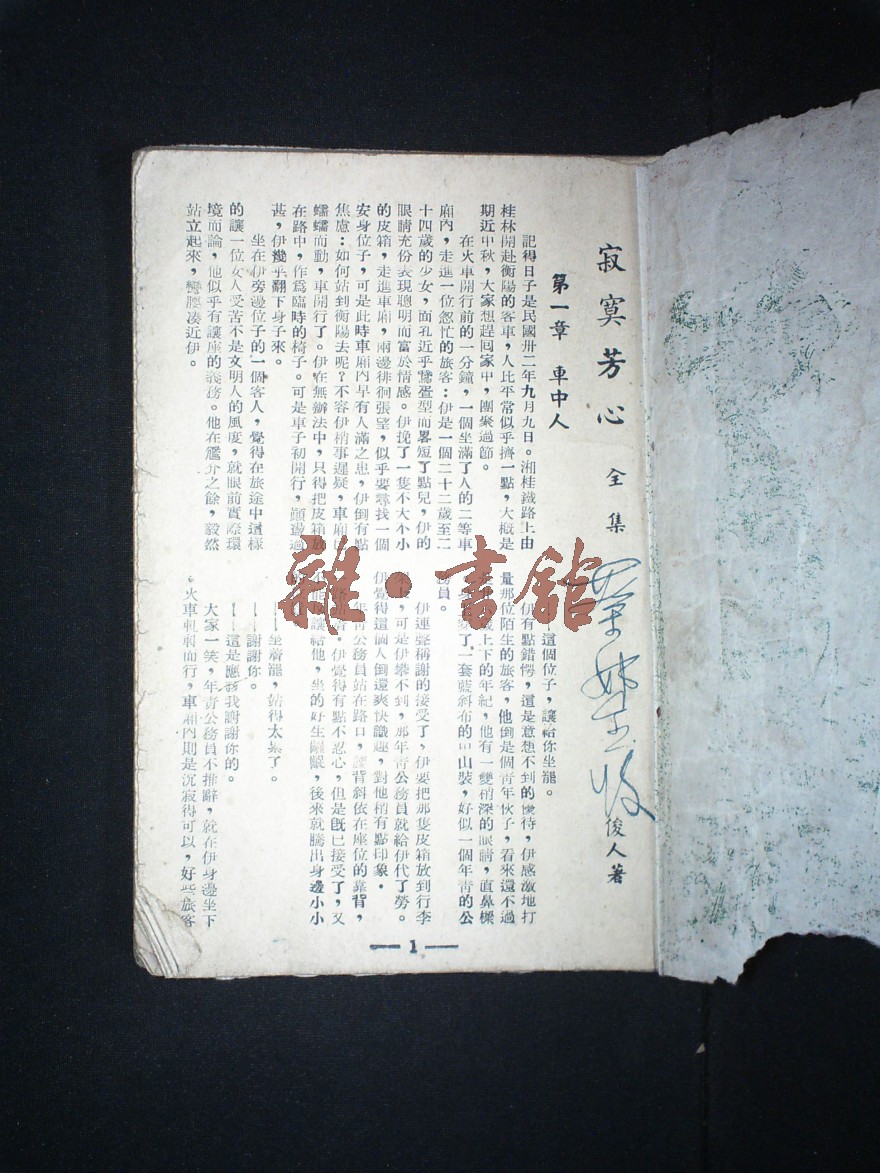 寂寞芳心 全集
俊人著
第一章 車中人
記得日子是民國卅二年九月九日。湘桂鐵路上由
桂林開赴衡陽的客車，人比平常似乎擠一點，大概是
期近中秋，大家想趕囘家中，團聚過節。
在火車開行前的一分鐘，一個坐滿了人的二等車
廂內，走進一位怱忙的旅客：伊是一個二十二歲至二
十四歲的少女，面孔近乎鵞蛋型而畧短了點兒，伊的
眼睛充份表現聰明而富於情感。伊挽了一隻不大不小
的皮箱，走進車廂，兩邊徘徊張望，似乎要尋找一個
安身位子，可是此時車厢內早有人滿之患，伊倒有點
焦慮：如何站到衡陽去呢？不容伊稍事遲疑，車厢
蠕蠕而動，車開行了。伊在無辦法中，只得把皮箱放
在路中，作爲臨時的椅子。可是車子初開行，顚盪過
甚，伊幾乎翻下身子來。
坐在伊旁邊位子的一個客人，覺得在旅途中這樣
的讓一位女人受苦不是文明人的風度，就眼前實際環
境而論，他似乎有讓座的義務。他在尶介之餘，毅然
站立起來，彎腰凑近伊。
這個位子，讓給你坐罷。
伊有點錯愕，這是意想不到的優待，伊感激地打
量那位陌生的旅客，他倒是個靑年伙子，看來還不過
上下的年紀，他有一雙稍深的眼睛，直鼻樑
了一套藍斜布的中山裝，好似一個年靑的公
務員。
伊連聲稱謝的接受了，伊要把那隻皮箱放到行李
上，可是伊攀不到，那年靑公務員就給伊代了勞。
伊覺得這個人倒還爽快識趣，對他稍有點印象。
年靑公務員站在路口，腰背斜依在座位的靠背，
伊覺得有點不忍心，但是旣已接受了，又
讓給他，坐的好生靦覥，後來就騰出身邊小小
坐着罷，站得太累了。
——謝謝你。
——這是應該我謝謝你的。
大家一笑，年靑公務員不推辭，就在伊身邊坐下
。火車剌剌而行，車厢內則是沉寂得可以，好些旅客
— 1 —
雜·書館